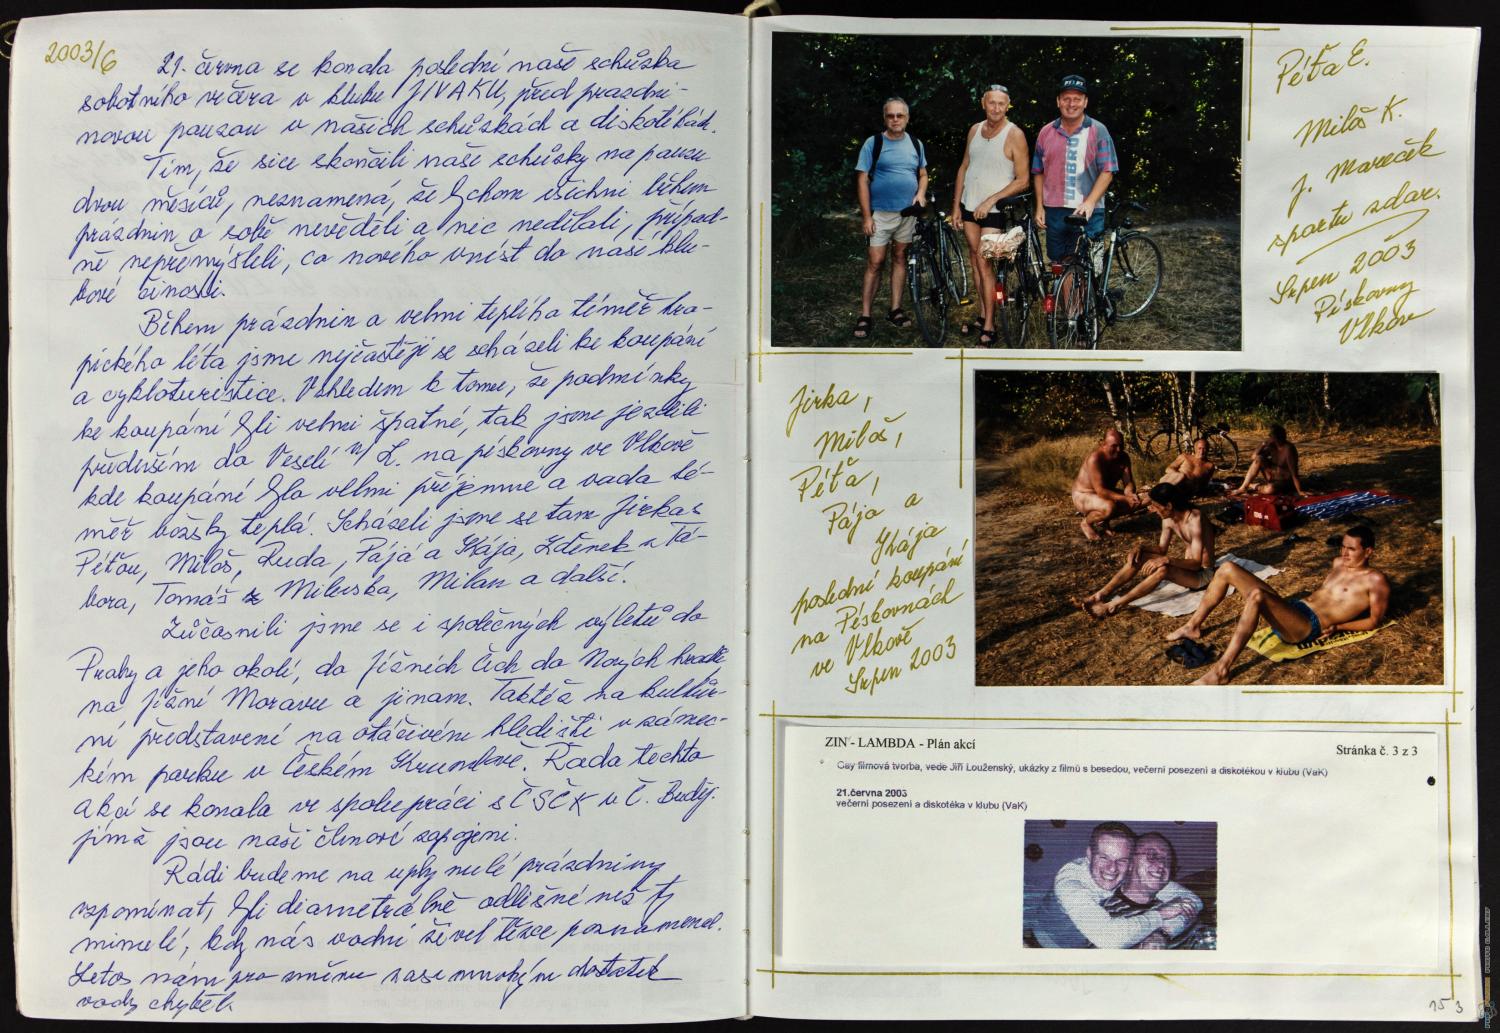 2003/6
21. června se konala poslední naše schůzka
sobotního večera v klubu JIVAKU, před prazdni-
novou pauzou v našich schůzkách a diskotékách.
Tím, že sice skončili naše schůzky na pauzu
dvou měsíců, neznamená, že bychom všichni během
prázdnin o sobě nevěděli a nic nedělali, případ-
ně nepřemýšleli, co nového vnést do naší klu-
bové činosti.
Během prázdnin a velmi teplého téměř tro-
pického léta jsme nejčastěji se scházeli ke koupání
a cykloturistice. Vzhledem k tomu, že podmínky
ke koupání byli velmi špatné, tak jsme jezdili
především do Veselí n/L. na pískovny ve Vlkově
kde koupání bylo velmi příjemné a voda té-
měř božsky teplá. Scházeli jsme se tam Jirka s
Péťou, Miloš, Luda, Pája a Kája, Zdeněk z Tá-
bora, Tomáš z Milevska, Milan a další.
Zúčasnili jsme se i společných výletů do
Prahy a jeho okolí, do jižních Čech do Nových hradů,
na jižní Moravu a jinam. Taktéž na kultůr-
ní představení na otáčivém hledišti v zámec-
kém parku v Českém Krumlově. Řada techto
akcí se konala ve spolupráci s ČSČK v Č. Buděj.
jímž jsou naši členové zapojeni.
Rádi budeme na uplynulé prázdniny
vzpomínat, byli diametrálně odlišné než ty
minulé, kdy nás vodní živel těžce poznamenal.
Letos nám pro změnu zase mnohým dostatek
vody chyběl.
Péťa E.
Miloš K.
J. Mareček
sportu zdar.
Srpen 2003
Pískovny
Vlkov
UMBRO
Jirka,
Miloš,
Péťa,
Pája a
Kája
poslední koupání
na Pískovnách
ve Vlkově
Srpen 2003
ZIN - LAMBDA - Plán akcí
Stránka č. 3 z 3
Gay filmová tvorba, vede Jiří Louženský, ukázky z filmů s besedou, večerní posezení a diskotékou v klubu (VaK)
21.června 2003
večerní posezení a diskotéka v klubu (VaK)
153